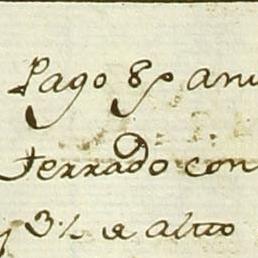 Pago 8p anu
Terrado con
y 3 1/2 de altto